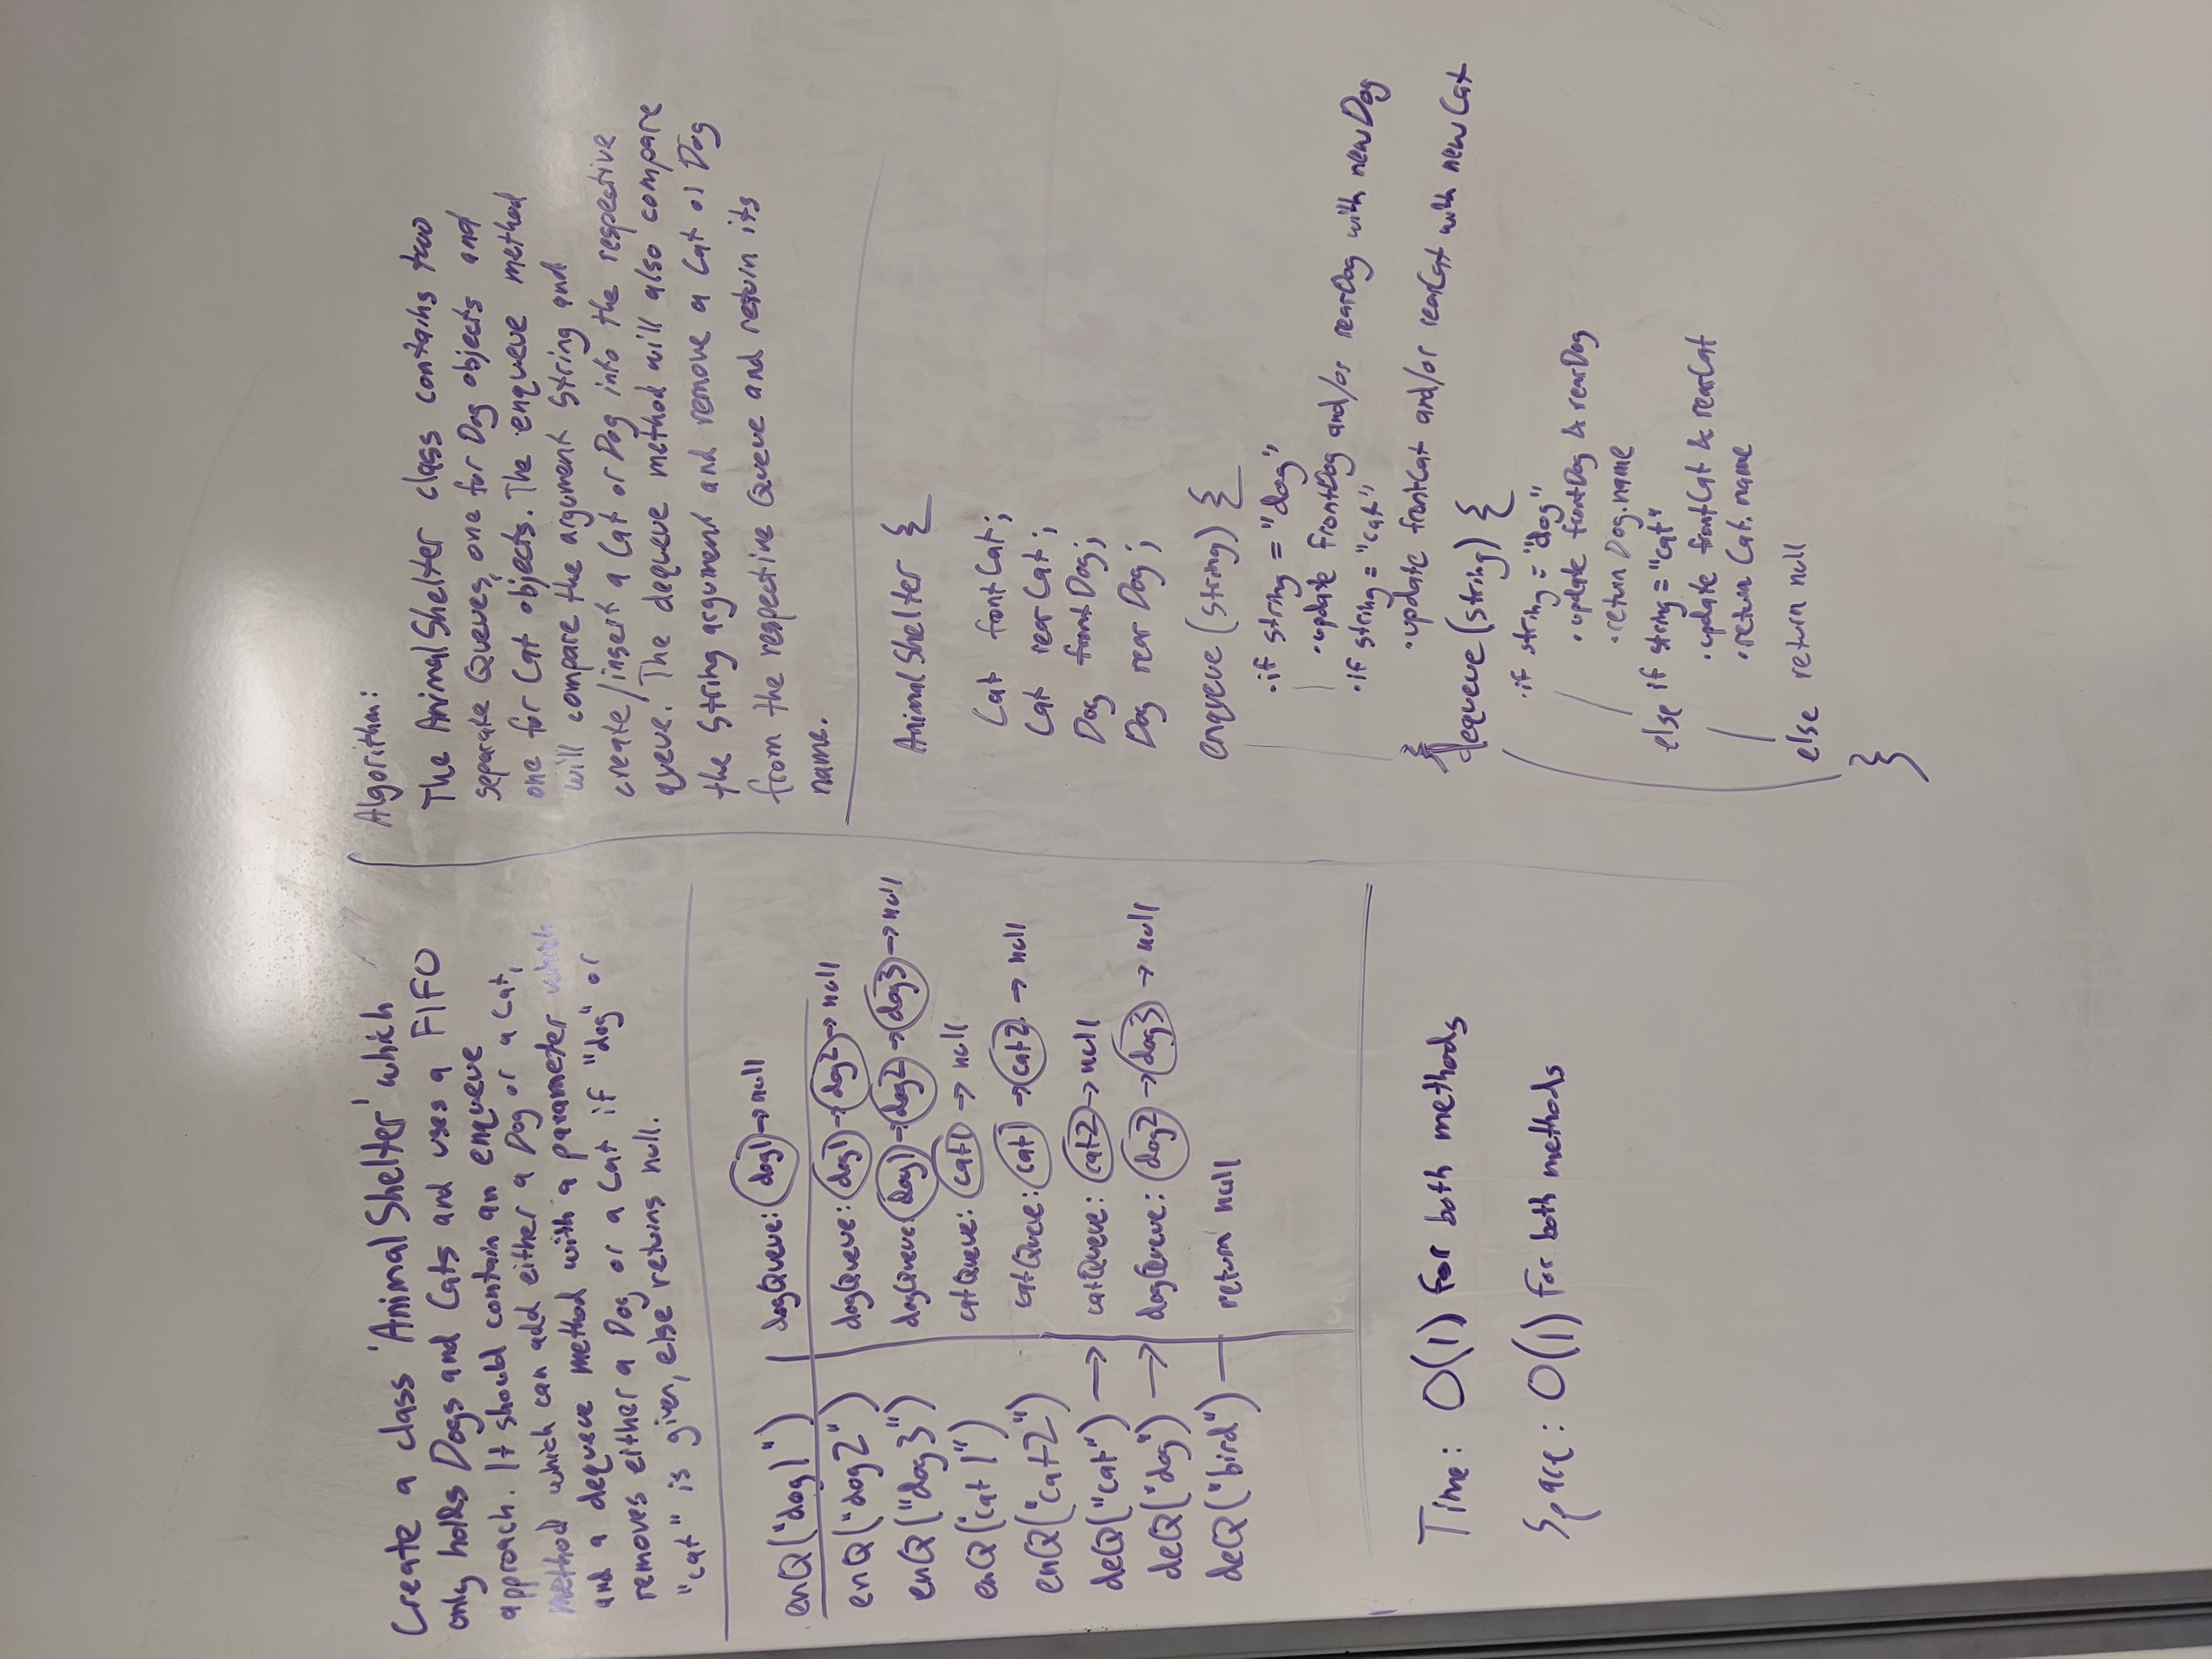 Create a class 'AnimalShelter' which
only holds Dogs and Cats and uses a FIFO
approach. It should contain an enqueue
method which can add either a Dog or a Cat,
and a dequeue method with a parameter which
removes either a Dog or a Cat if "dog" or
"cat" is given, else returns null.
enQ("dog1") dogQueue: dog1 → null
enQ("dog2") dogQueue: dog1 → dog2 → null
enQ("dog3") dogQueue: dog1 → dog2 → dog3 → null
enQ("cat1") catQueue: cat1 → null
enQ("cat2") catQueue: cat1 → cat2 → null
deQ("cat") → catQueue: cat2 → null
deQ("dog") → dogQueue: dog2 → dog3 → null
deQ("bird") — return null
Time: O(1) for both methods
Space: O(1) for both methods
Algorithm:
The AnimalShelter class contains two
separate Queues, one for Dog objects and
one for Cat objects. The enqueue method
will compare the argument String and
create/insert a Cat or Dog into the respective
queue. The dequeue method will also compare
the String argument and remove a Cat or Dog
from the respective Queue and return its
name.
AnimalShelter {
Cat fontCat;
Cat rearCat;
Dog frontDog;
Dog rearDog;
enqueue (string) {
• if string = "dog"
• update frontDog and/or rearDog with newDog
• if string = "cat"
• update frontCat and/or rearCat with newCat
}
dequeue (string) {
• if string = "dog"
• update frontDog & rearDog
• return Dog.name
else if string = "cat"
• update frontCat & rearCat
• return Cat.name
else return null
}